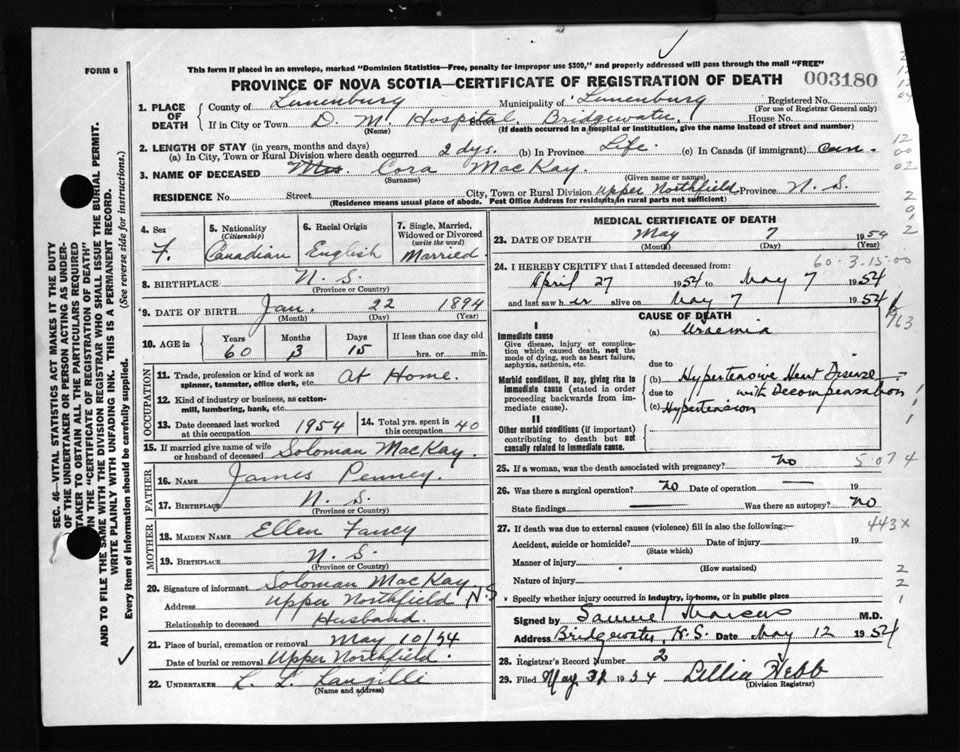 FORM 6
This form if placed in an envelope, marked "Dominion Statistics—Free, penalty for improper use $300," and properly addressed will pass through the mail "FREE"
PROVINCE OF NOVA SCOTIA—CERTIFICATE OF REGISTRATION OF DEATH 003180
1. PLACE OF DEATH County of Lunenburg Municipality of Lunenburg Registered No. (For use of Registrar General only)
If in City or Town D. M. Hospital, Bridgewater, Street House No.
(Name) (If death occurred in a hospital or institution, give the name instead of street and number)
2. LENGTH OF STAY (in years, months and days)
(a) In City, Town or Rural Division where death occurred 2 dys. (b) In Province Life. (c) In Canada (if immigrant) Can.
3. NAME OF DECEASED Mrs. Cora MacKay.
(Surname) (Given name or names)
RESIDENCE No. Street City, Town or Rural Division Upper Northfield Province N. S.
(Residence means usual place of abode. Post Office Address for residents in rural parts not sufficient)
4. Sex 5. Nationality (Citizenship) 6. Racial Origin 7. Single, Married, Widowed or Divorced (write the word)
F. Canadian English Married.
8. BIRTHPLACE N. S.
(Province or Country)
9. DATE OF BIRTH Jan. 22 1894
(Month) (Day) (Year)
10. AGE in Years Months Days If less than one day old
60 3 15 hrs. or min.
OCCUPATION
11. Trade, profession or kind of work as spinner, teamster, office clerk, etc. At Home.
12. Kind of industry or business, as cotton-mill, lumbering, bank, etc.
13. Date deceased last worked at this occupation 1954 14. Total yrs. spent in this occupation 40
15. If married give name of wife or husband of deceased Soloman MacKay.
FATHER
16. NAME James Penney.
17. BIRTHPLACE N. S.
(Province or Country)
MOTHER
18. MAIDEN NAME Ellen Fancy
19. BIRTHPLACE N. S.
(Province or Country)
20. Signature of informant Soloman MacKay
Address Upper Northfield N S
Relationship to deceased Husband.
21. Place of burial, cremation or removal May 10/54
Date of burial or removal Upper Northfield.
22. UNDERTAKER L. L. Langilli
(Name and address)
MEDICAL CERTIFICATE OF DEATH
23. DATE OF DEATH May 7 1954
(Month) (Day) (Year)
60-3-15-00
24. I HEREBY CERTIFY that I attended deceased from:
April 27 1954 to May 7 1954
and last saw h er alive on May 7 1954
CAUSE OF DEATH
I
Immediate cause
Give disease, injury or complication which caused death, not the mode of dying, such as heart failure, asphyxia, asthenia, etc.
(a) Uraemia
due to
Morbid conditions, if any, giving rise to immediate cause (stated in order proceeding backwards from immediate cause).
(b) Hypertensive Heart Disease
due to with Decompensation
(c) Hypertension
II
Other morbid conditions (if important) contributing to death but not causally related to immediate cause.
25. If a woman, was the death associated with pregnancy? no 5-074
26. Was there a surgical operation? no Date of operation 19
State findings Was there an autopsy? no
27. If death was due to external causes (violence) fill in also the following:— 443X
Accident, suicide or homicide? Date of injury 19
(State which)
Manner of injury
(How sustained)
Nature of injury
Specify whether injury occurred in industry, in home, or in public place
Signed by Samuel Marcus M.D.
Address Bridgewater, N.S. Date May 12 1954
28. Registrar's Record Number 2
29. Filed May 31 1954 Lillia Webb
(Division Registrar)
SEC. 46—VITAL STATISTICS ACT MAKES IT THE DUTY
OF THE UNDERTAKER OR PERSON ACTING AS UNDER-
TAKER TO OBTAIN ALL THE PARTICULARS REQUIRED
IN THE "CERTIFICATE OF REGISTRATION OF DEATH"
AND TO FILE THE SAME WITH THE DIVISION REGISTRAR WHO SHALL ISSUE THE BURIAL PERMIT.
WRITE PLAINLY WITH UNFADING INK. THIS IS A PERMANENT RECORD.
Every item of information should be carefully supplied. (See reverse side for instructions.)